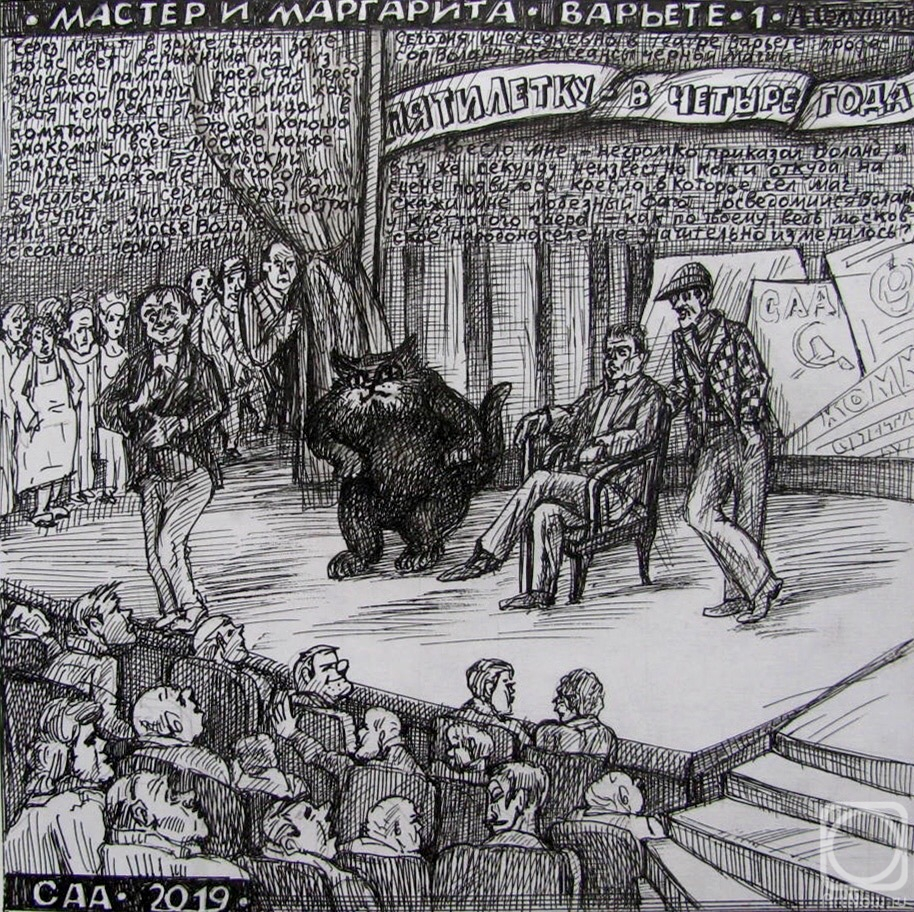 · МАСТЕР И МАРГАРИТА · ВАРЬЕТЕ · 1 ·
Через минут в зрительном зале
погас свет вспыхнула на низ
занавеса рампа и предстал перед
публикой полный веселый как
дитя человек с бритым лицом в
помятом фраке Это был хорошо
знакомый всей Москве конфе-
рансье Жорж Бенгальский
Итак граждане заговорил
Бенгальский сейчас перед вами
выступит знаменитый иностран
ный артист мосье Воланд
с сеансом черной магии
Сегодня и ежедневно в театре варьете профес-
сор Воланд сеансы черной магии
ПЯТИЛЕТКУ - В ЧЕТЫРЕ ГОДА
- Кресло мне - негромко приказал Воланд, и
в ту же секунду неизвестно как и откуда на
сцене появилось кресло, в которое сел маг, -
скажи мне любезный Фагот - осведомился Воланд
у клетчатого гаера - как по твоему ведь москов
ское народонаселение значительно изменилось?
САА
САА · 2019 ·